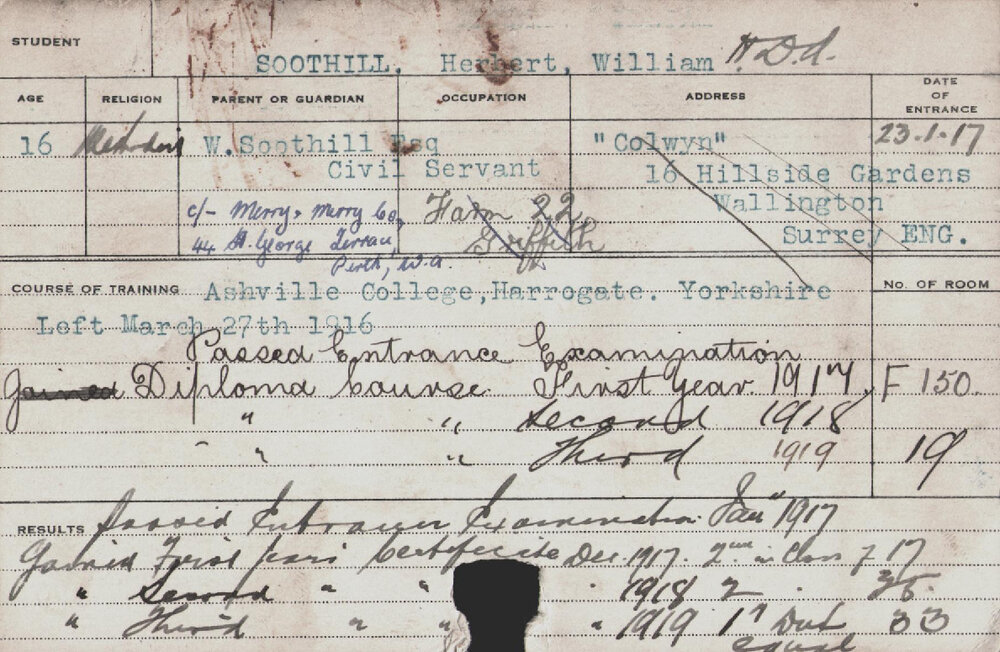 STUDENT
SOOTHILL, Herbert, William H.D.A.
AGE RELIGION PARENT OR GUARDIAN OCCUPATION ADDRESS DATE OF ENTRANCE
16 Methodist W.Soothill Esq "Colwyn" 23.1.17
Civil Servant 16 Hillside Gardens
c/- Merry & Merry Co, Farm 22 Wallington
44 St. George Terrace, Griffith Surrey ENG.
Perth, W.A.
COURSE OF TRAINING Ashville College,Harrogate. Yorkshire No. OF ROOM
Left March 27th 1916
Passed Entrance Examination
Joined Diploma Course First Year. 1917, F 150.
" " Second 1918
" " Third 1919 19
RESULTS Passed Entrance Examination Jan 1917
Gained First Year Certificate Dec. 1917. 2nd in Class of 17
" Second " " " 1918 2 "
" Third " " " 1919 1st Dux 33
equal